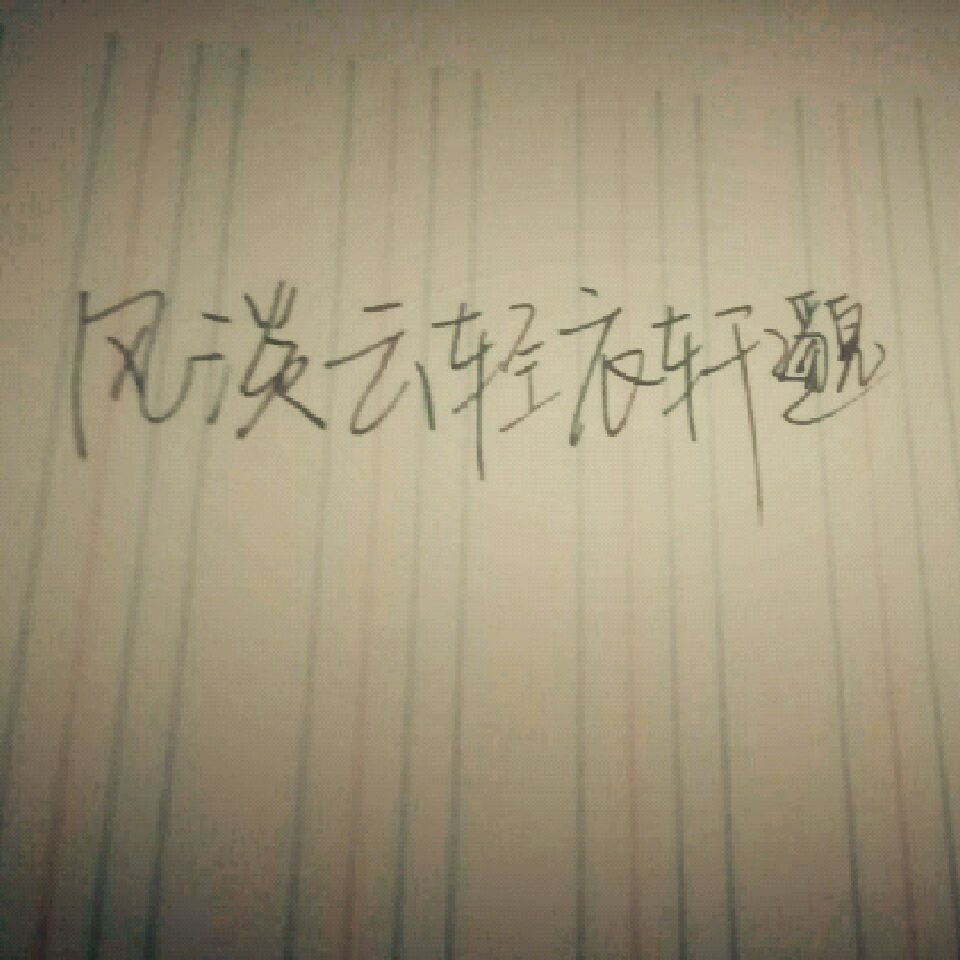 风淡云轻衣轩邈